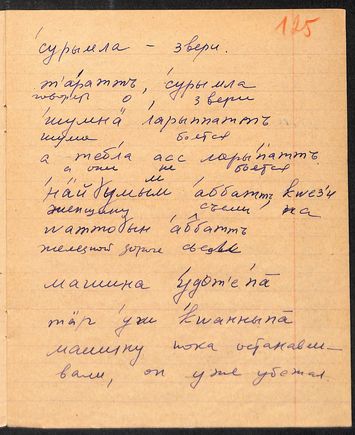 125
сурымла – звери.
тӓраттъ, сурымла
говорят о звери
шумнӓ ларыпаттъ
шума боятся
а тебла асс ларыпаттъ.
а они не боятся
найӷумым аббатт, квез'и
женщину съели, на
ваттобын аббаттъ
железной дороге съели
машина
тӓр уж кванныпа
машину пока останавли-
вали, он уже убежал.